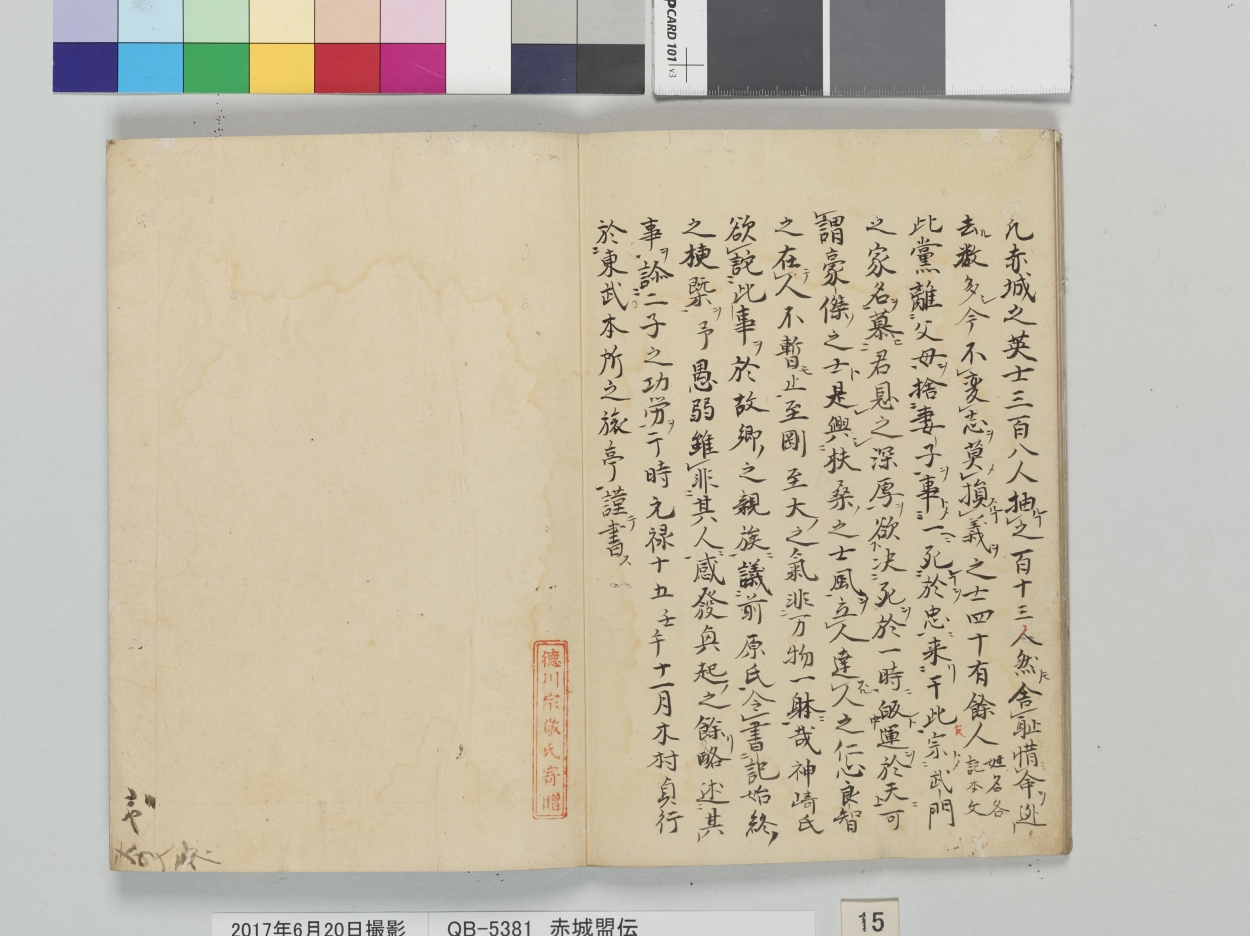 凡赤城之英士三百八人抽之百十三人然舎恥惜命逃
去数多今不変志莫損義之士四十有餘人姓名各記本文
此黨離父母捨妻子事一死於忠来于此宗武門
之家名慕君恩之深厚欲决死於一時皈運於天可
謂豪傑之士是興扶桑之士風立人達人之仁心良智
之在人不暫止至剛至大之氣非万物一躰哉神崎氏
欲説此事於故郷之親族議前原氏令書記始終
之梗槩予愚弱雖非其人感發興起之餘略述其
事諗二子之功労于時元禄十五壬午十一月木村貞行
於東武本所之旅亭謹書
德川宗敬氏寄贈
CARD 101 v3
2017年6月20日撮影 QB-5381 赤城盟伝
15